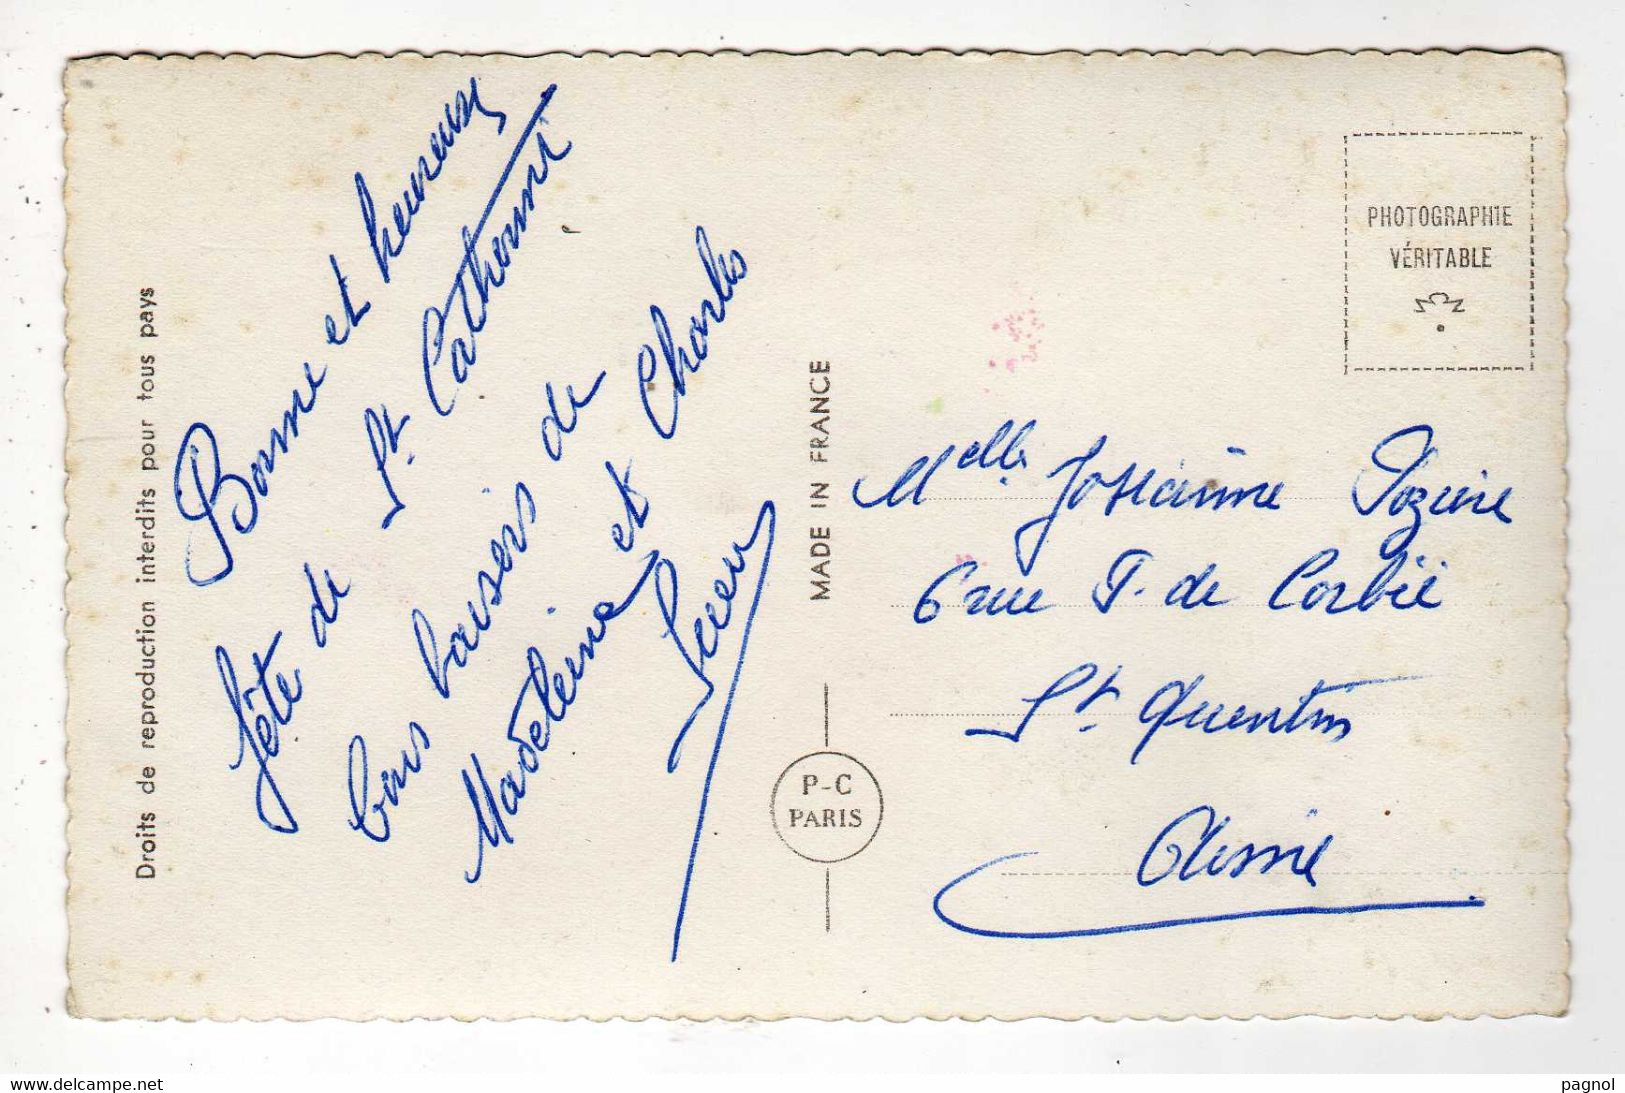 Droits de reproduction interdits pour tous pays
Bonne et heureuse
fête de St Catherine
bons baisers de
Madeleine et Charles
MADE IN FRANCE
P-C
PARIS
PHOTOGRAPHIE
VÉRITABLE
Melle Josianne
6 rue P. de Corbie
St Quentin
Aisne
www.delcampe.net
pagnol